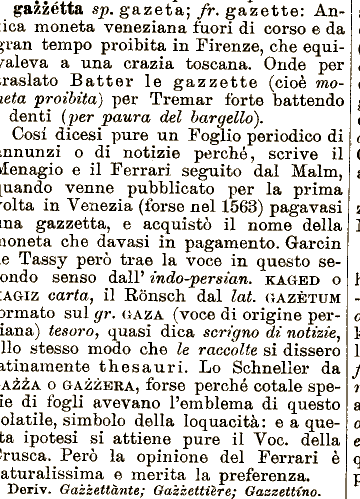 gażżétta sp. gazeta; fr. gazette: An-
tica moneta veneziana fuori di corso e da
gran tempo proibita in Firenze, che equi-
valeva a una crazia toscana. Onde per
traslato Batter le gazzette (cioè mo-
neta proibita) per Tremar forte battendo
i denti (per paura del bargello).
Cosí dicesi pure un Foglio periodico di
annunzi o di notizie perché, scrive il
Menagio e il Ferrari seguito dal Malm,
quando venne pubblicato per la prima
volta in Venezia (forse nel 1563) pagavasi
una gazzetta, e acquistò il nome della
moneta che davasi in pagamento. Garcin
de Tassy però trae la voce in questo se-
condo senso dall' indo-persian. KAGED o
KAGIZ carta, il Rönsch dal lat. GAZÈTUM
formato sul gr. GAZA (voce di origine per-
siana) tesoro, quasi dica scrigno di notizie,
allo stesso modo che le raccolte si dissero
latinamente thesauri. Lo Schneller da
GAŻŻA o GAŻŻERA, forse perché cotale spe-
cie di fogli avevano l'emblema di questo
volatile, simbolo della loquacità: e a que-
sta ipotesi si attiene pure il Voc. della
Crusca. Però la opinione del Ferrari è
naturalissima e merita la preferenza.
Deriv. Gażżettànte; Gażżettière; Gazzettíno.